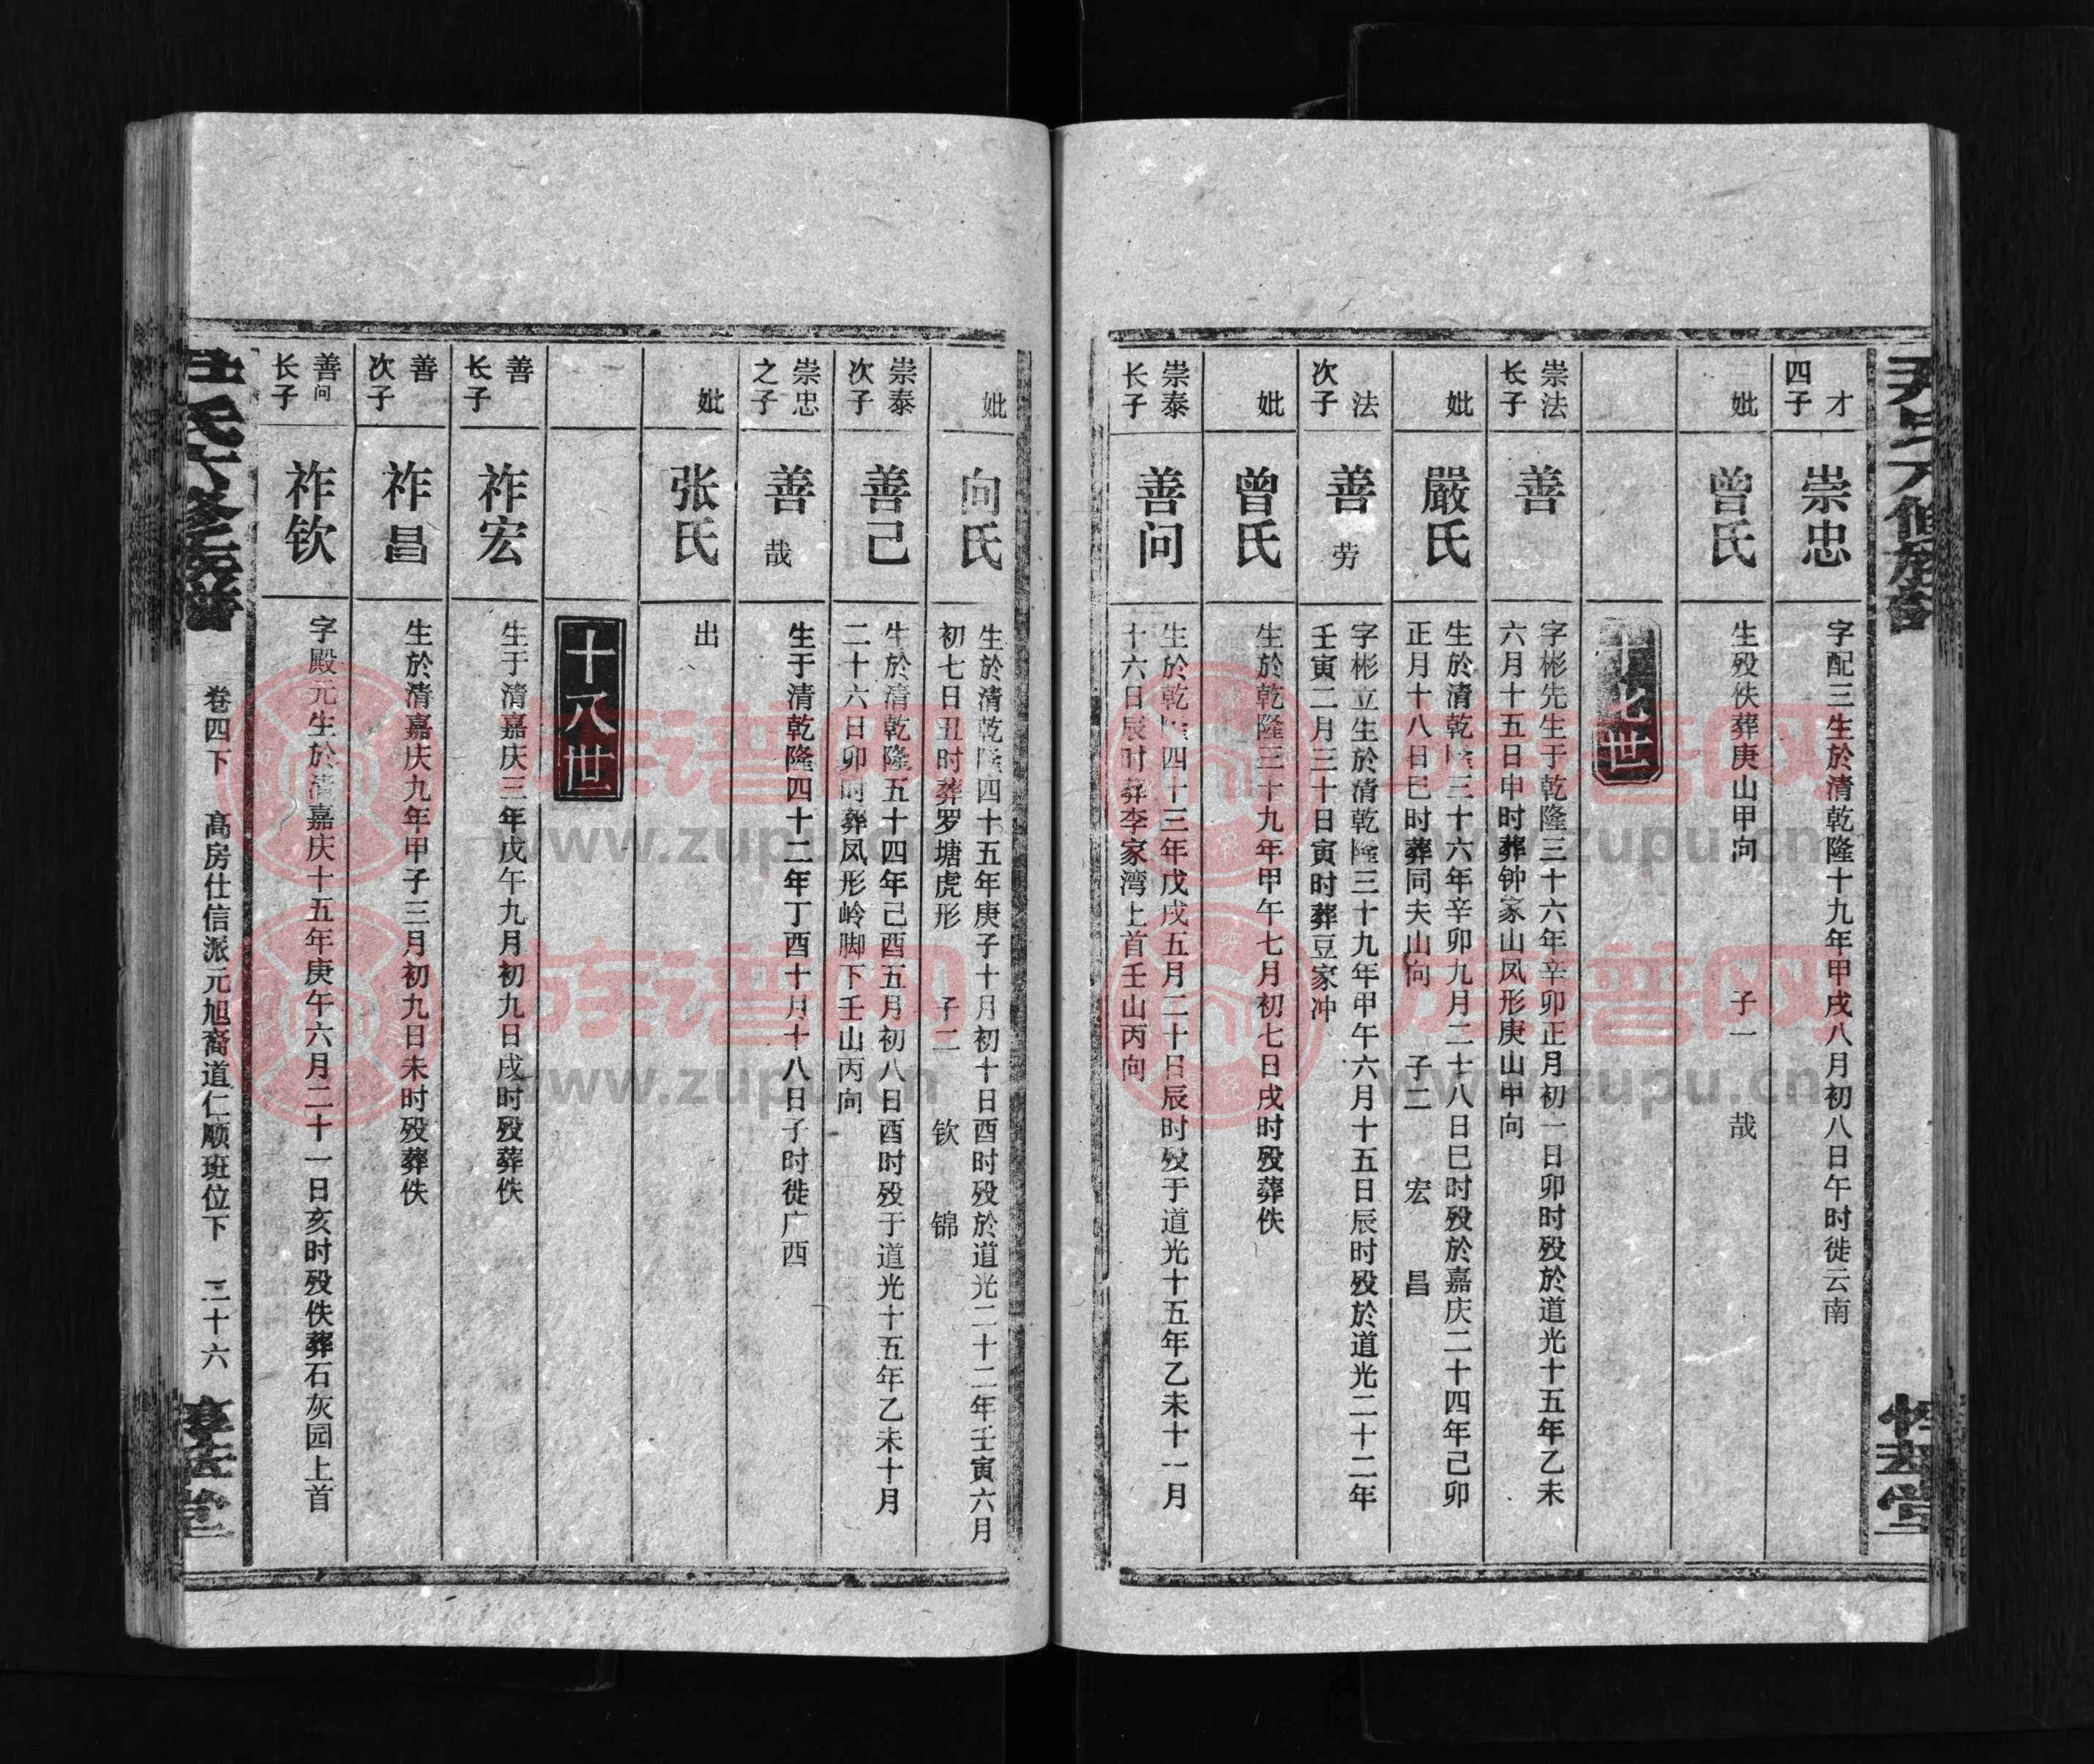 四子
才
崇忠
字配三生於清乾隆十九年甲戌八月初八日午时徙云南
妣
曾氏
生殁佚葬庚山甲向 子一 哉
世
长子
崇法
善
字彬先生于乾隆三十六年辛卯正月初一日卯时殁於道光十五年乙未
六月十五日申时葬钟家山凤形庚山甲向
妣
嚴氏
生於清乾隆三十六年辛卯九月二十八日巳时殁於嘉庆二十四年己卯
正月十八日巳时葬同夫山向 子二 宏 昌
次子
法
善劳
字彬立生於清乾隆三十九年甲午六月十五日辰时殁於道光二十二年
壬寅二月三十日寅时葬豆家冲
妣
曾氏
生於乾隆三十九年甲午七月初七日戌时殁葬佚
崇泰
长子
善问
生於乾隆四十三年戊戌五月二十日辰时殁于道光十五年乙未十一月
十六日辰时葬李家湾上首壬山丙向
妣
向氏
生於清乾隆四十五年庚子十月初十日酉时殁於道光二十二年壬寅六月
初七日丑时葬罗塘虎形 子二 钦 锦
崇泰
次子
善己
生於清乾隆五十四年己酉五月初八日酉时殁于道光十五年乙未十月
二十六日卯时葬凤形岭脚下壬山丙向
崇忠
之子
善哉
生于清乾隆四十二年丁酉十月十八日子时徙广西
妣
张氏
出
十八世
善
长子
祚宏
生于清嘉庆三年戊午九月初九日戌时殁葬佚
善
次子
祚昌
生於清嘉庆九年甲子三月初九日未时殁葬佚
善问
长子
祚钦
字殿元生於清嘉庆十五年庚午六月二十一日亥时殁佚葬石灰园上首
卷四下 高房仕信派元旭裔道仁顺班位下 三十六
族谱网
www.zupu.cn
族谱网
www.zupu.cn
族谱网
www.zupu.cn
族谱网
www.zupu.cn